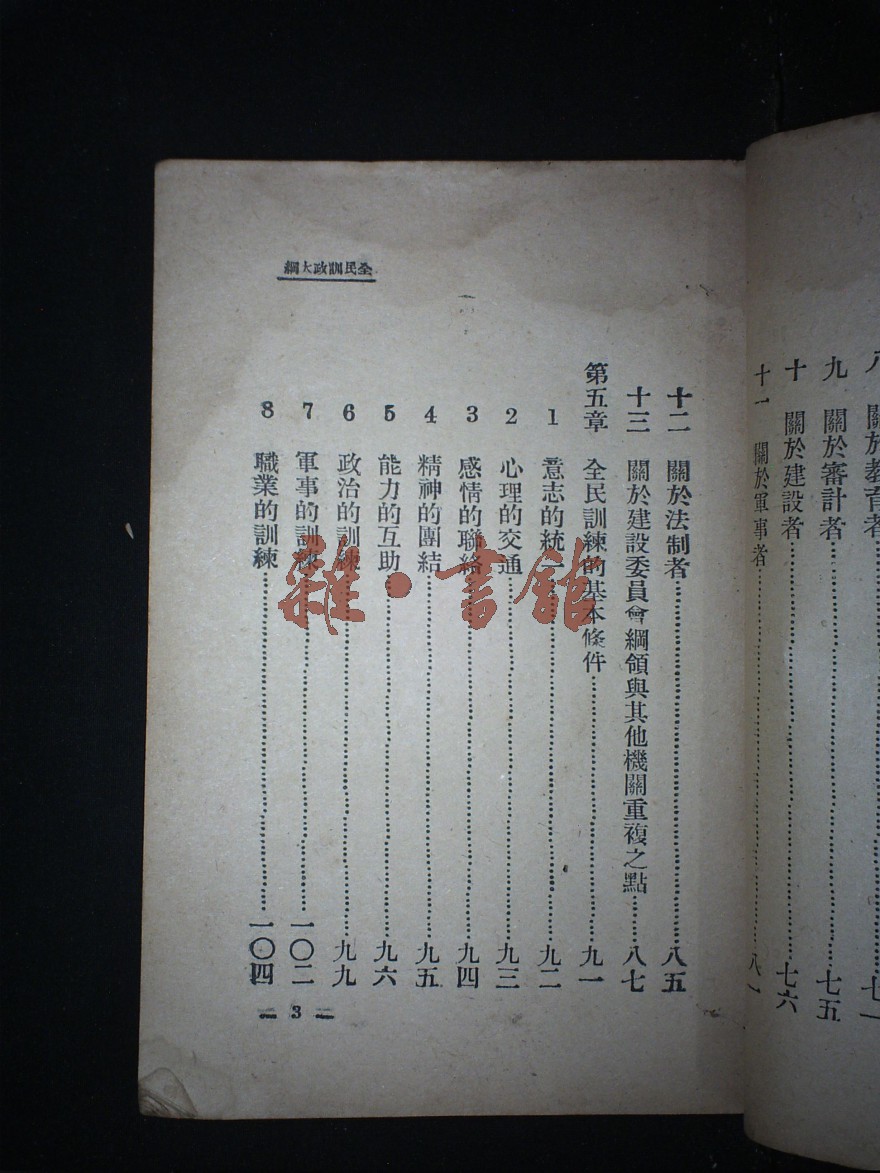 八 關於教育者
九 關於審計者……七五
十 關於建設者……七六
十一 關於軍事者……八一
全民訓政大綱
十二 關於法制者……八五
十三 關於建設委員會綱領與其他機關重複之點……八七
第五章 全民訓練的基本條件……九一
1 意志的統一……九二
2 心理的交通……九三
3 感情的聯絡……九四
4 精神的團結……九五
5 能力的互助……九六
6 政治的訓練……九九
7 軍事的訓練……一〇二
8 職業的訓練……一〇四
3
雜·書館